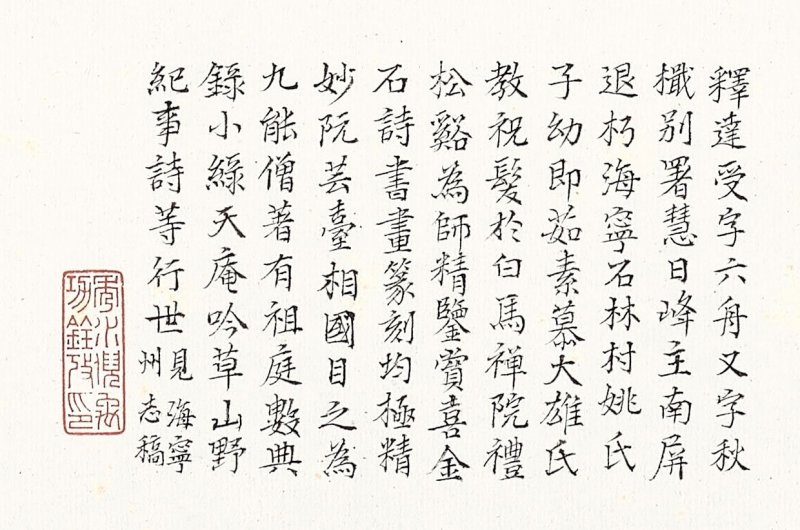 釋達受字六舟又字秋
檝別署慧日峰主南屏
退朽海寧石林村姚氏
子幼即茹素慕大雄氏
教祝髮於白馬禪院禮
松谿為師精鑒賞喜金
石詩書畫篆刻均極精
妙阮芸臺相國目之為
九能僧著有祖庭數典
錄小綠天庵吟草山野
紀事詩等行世
見海寧
州志稿